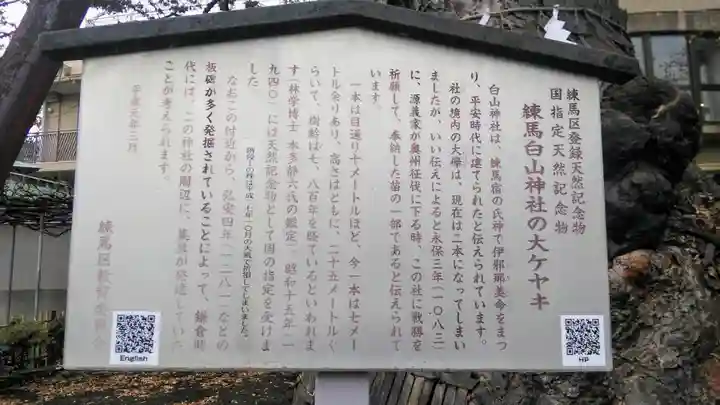 練馬区登録天然記念物
国指定天然記念物
練馬白山神社の大ケヤキ
白山神社は、練馬宿の氏神で伊邪那美命をまつ
り、平安時代に建てられたと伝えられています。
社の境内の大欅は、現在は二本になってしまい
ましたが、いい伝えによると永保三年(一〇八三)
に、源義家が奥州征伐に下る時、この社に戦勝を
祈願して、奉納した苗の一部であると伝えられて
います。
一本は目通り十メートルほど、今一本は七メー
トル余りあり、高さはともに、二十五メートルく
らいで、樹齢はも、八百年を経ているといわれま
す(林学博士 本多静六氏の鑑定)。昭和十五年(一
九四〇)には天然記念物として国の指定を受けま
した。
なおこの付近から、弘安四年(一二八一)などの
板碑が多く発掘されていることによって、鎌倉時
代には、この神社の周辺に、集落が発達していた
ことが考えられます。
平成元年三月
練馬区教育委員会
English
HP